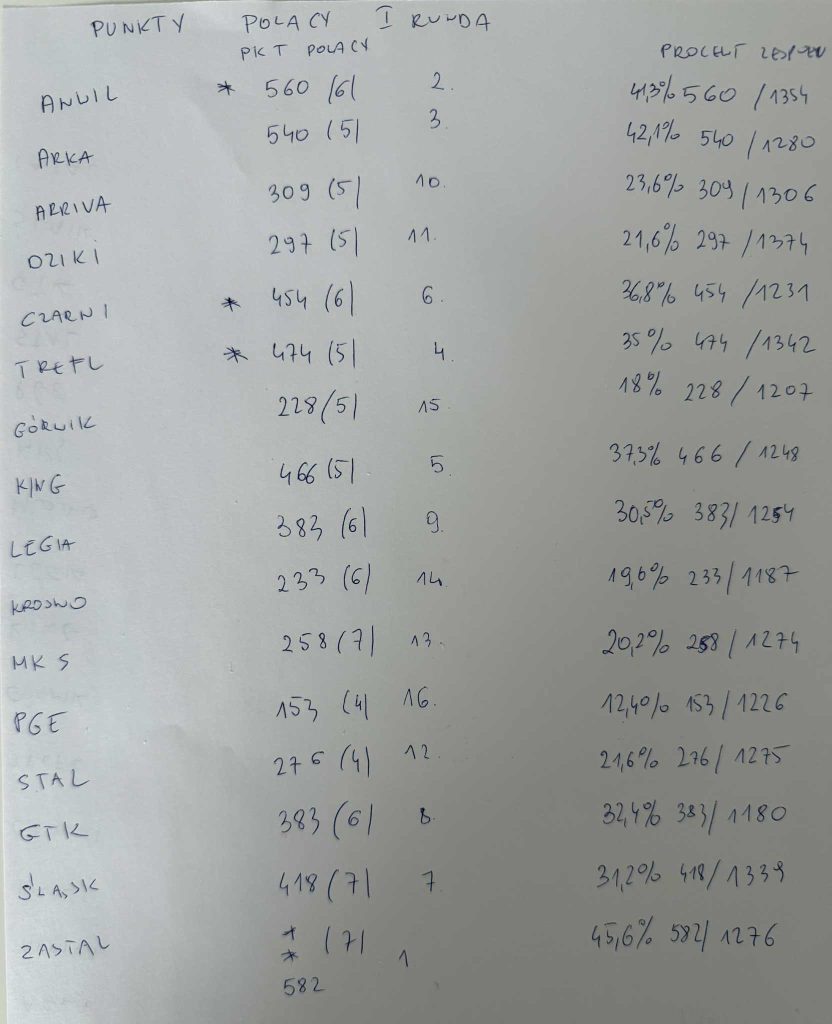 PUNKTY POLACY I RUNDA
PKT POLACY PROCENT ZESPOŁU
ANWIL * 560 (6) 2. 41,3% 560 / 1354
ARKA 540 (5) 3. 42,1% 540 / 1280
ARRIVA 309 (5) 10. 23,6% 309 / 1306
DZIKI 297 (5) 11. 21,6% 297 / 1374
CZARNI * 454 (6) 6. 36,8% 454 / 1231
TREFL * 474 (5) 4. 35% 474 / 1342
GÓRNIK 228 (5) 15. 18% 228 / 1207
KING 466 (5) 5. 37,3% 466 / 1248
LEGIA 383 (6) 9. 30,5% 383 / 1254
KROSNO 233 (6) 14. 19,6% 233 / 1187
MKS 258 (7) 13. 20,2% 258 / 1274
PGE 153 (4) 16. 12,4% 153 / 1226
STAL 276 (4) 12. 21,6% 276 / 1275
GTK 383 (6) 8. 32,4% 383 / 1180
ŚLĄSK 418 (7) 7. 31,2% 418 / 1339
ZASTAL ** (7) 1 45,6% 582 / 1276
582